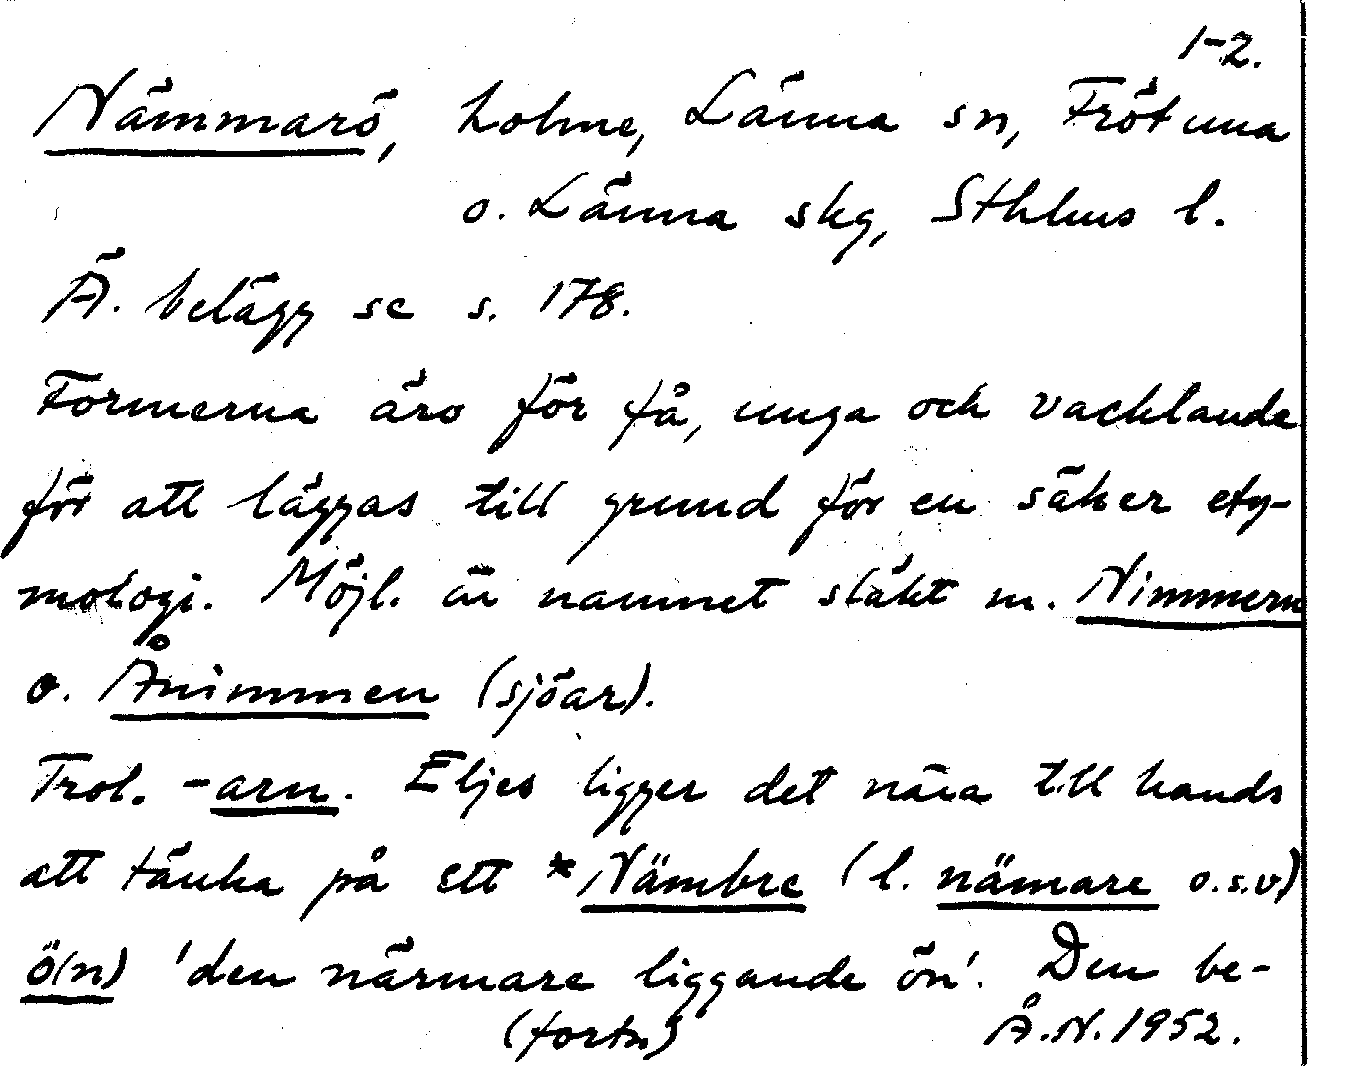 1-2.
Nämmarö, holme, Länna sn, Frötuna
o. Länna skg, Sthlms l.
Ä. belägg se s. 178.
Formerna äro för få, unga och vacklande
för att läggas till grund för en säker ety-
mologi. Möjl. är namnet släkt m. Nimmern
o. Ånimmen (sjöar).
Trol. -arn. Eljes ligger det nära till hands
att tänka på ett *Nämbre (l. nämare o.s.v)
ö(n) 'den närmare liggande ön'. Den be-
(forts) Å.N. 1952.